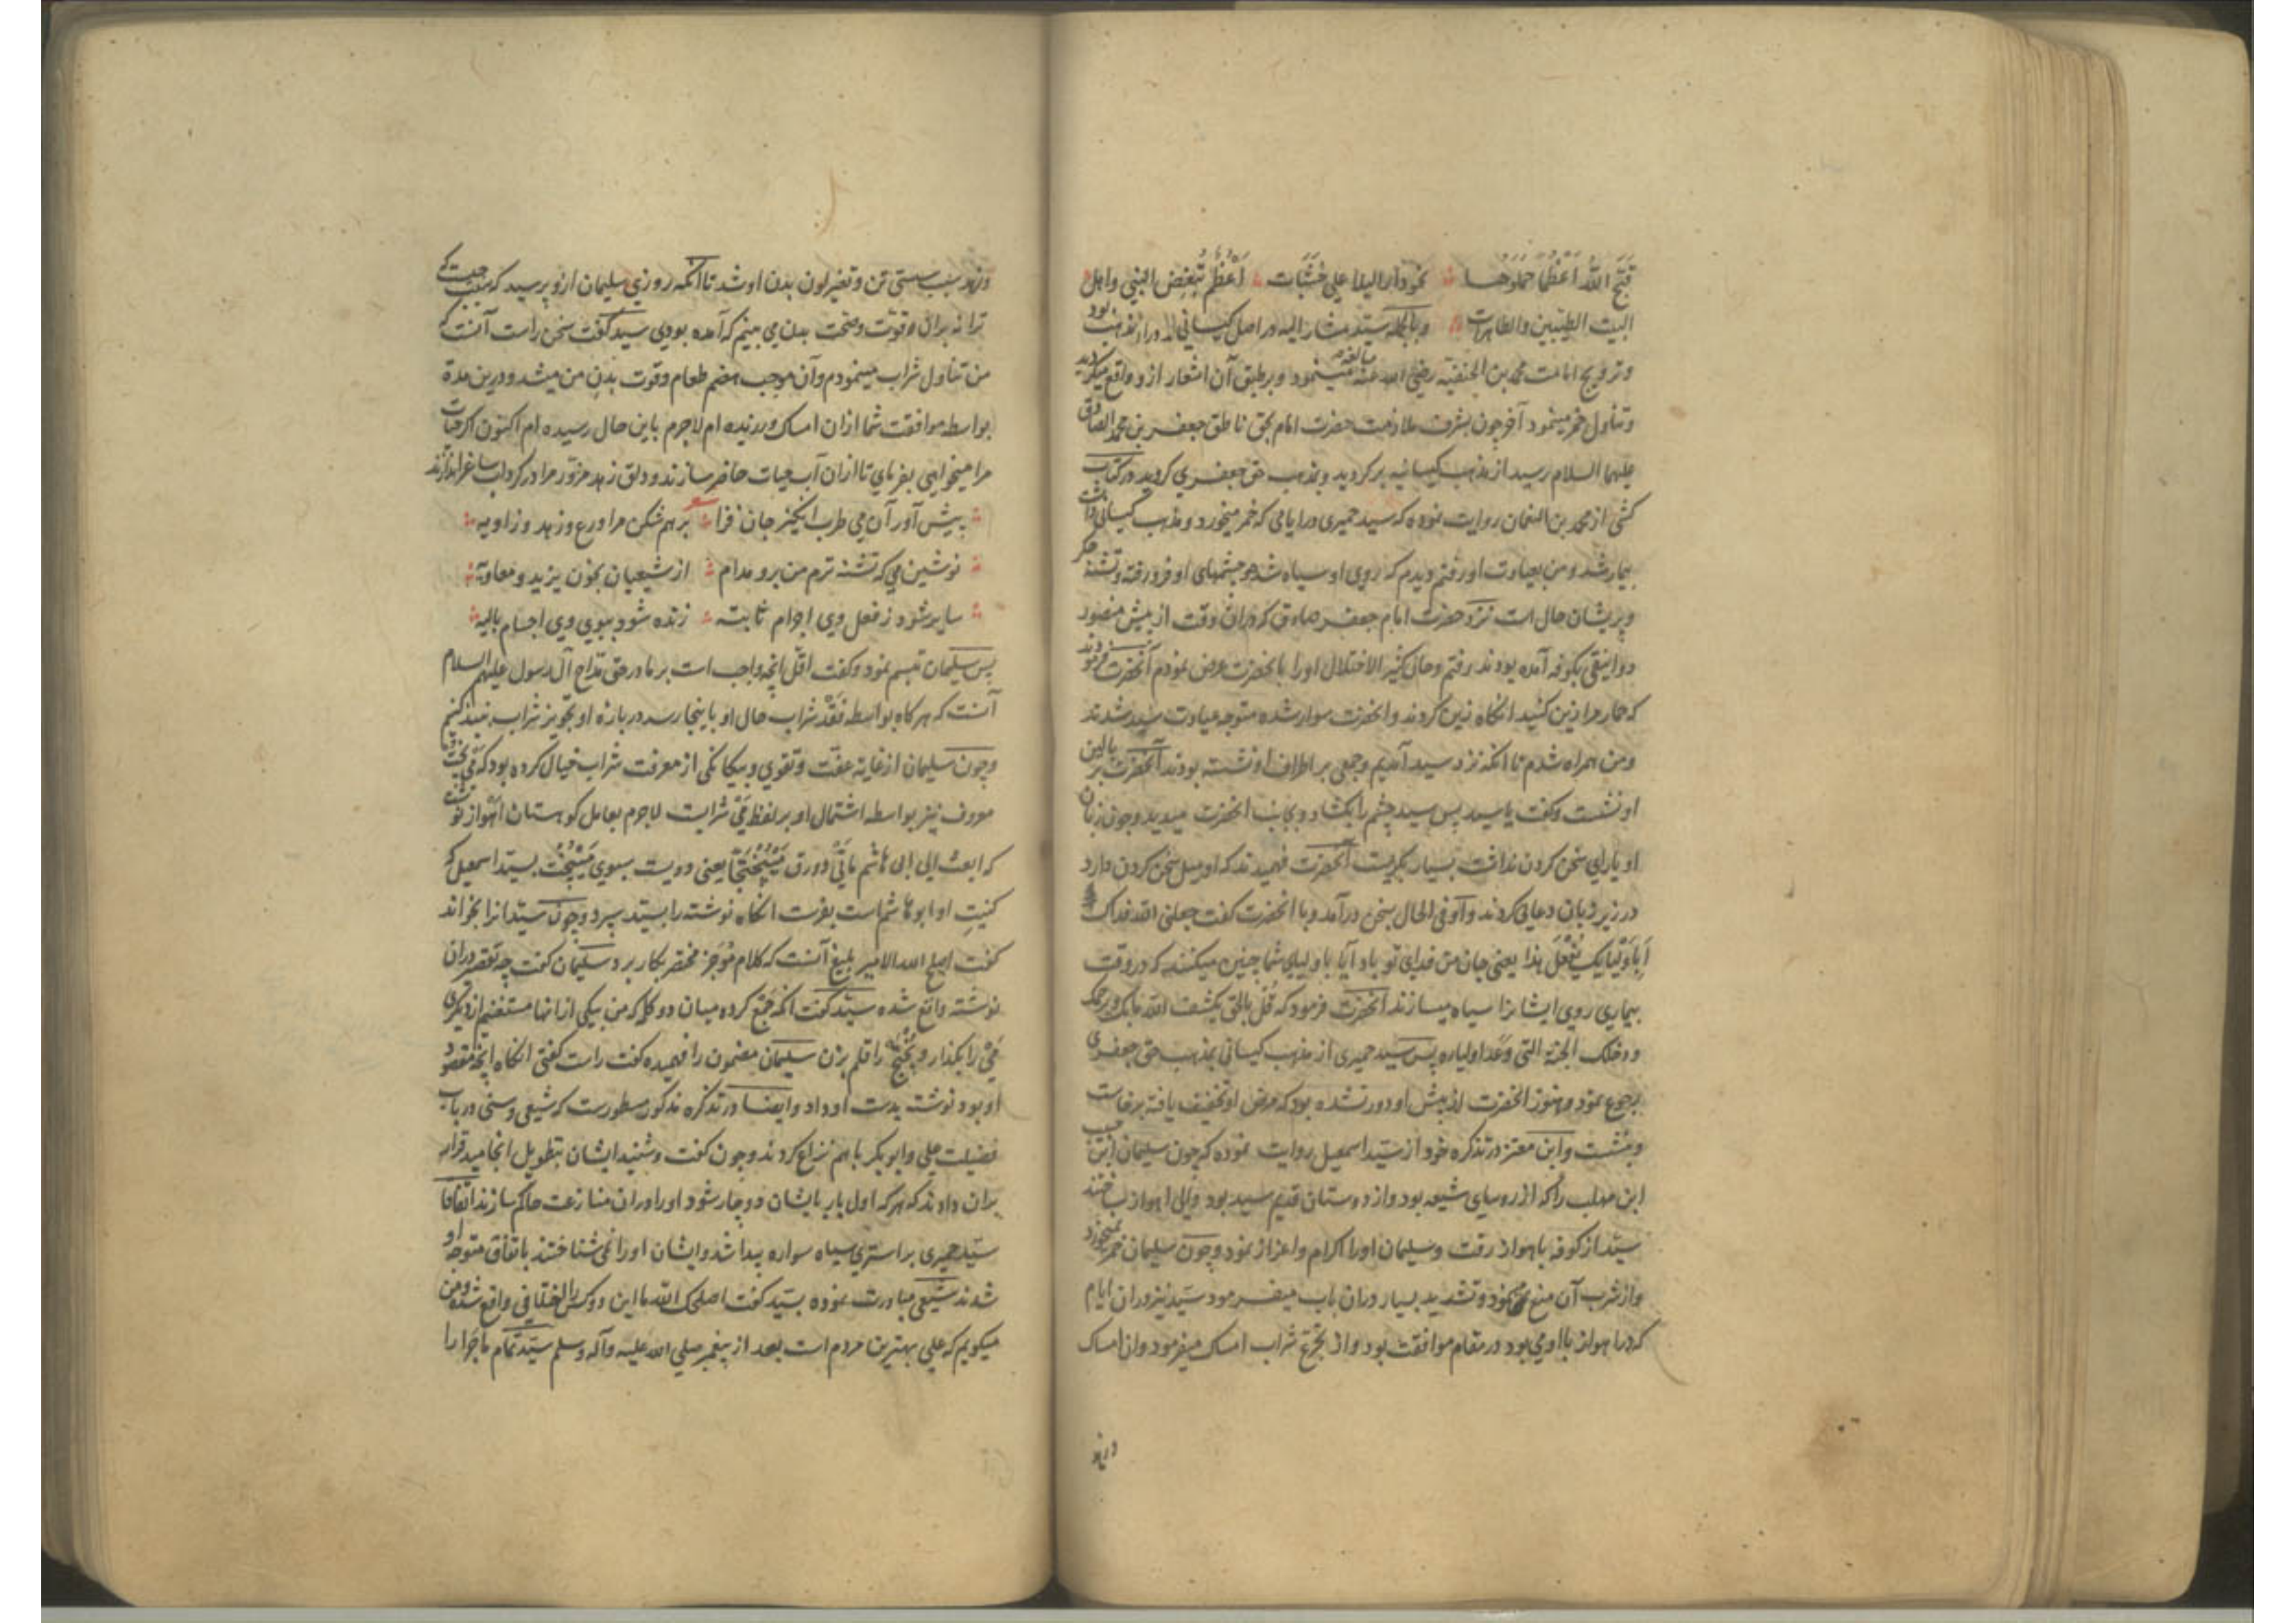 قبح الله اعظما حملوها نحو دار البلا علی خشبات اعظم تبغض النبی واهل
البیت الطیبین والطاهرات وبالجمله سید مشار الیه در اصل کیسانی بود در ان مذهب
وترویج امامت محمد بن الحنفیه رضی الله عنه مبالغه مینمود وبر طبق آن اشعار ازو واقع میکردید
وتناول خمر مینمود آخر چون بشرف ملازمت حضرت امام بحق ناطق جعفر بن محمد الصادق
علیهما السلام رسید از مذهب کیسانیه برکردید وبمذهب حق جعفری کروید ودر کتاب
کشی از محمد بن النعمان روایت نموده که سید حمیری در ایامی که خمر میخورد ومذهب کیسانی داشت
بیمار شد ومن بعیادت او رفتم دیدم که روی او سیاه شده وچشمهای او فرو رفته وتشنه جکر
وپریشان حال است نزد حضرت امام جعفر صادق که دران وقت از پیش منصور
دوانیقی بکوفه آمده بودند رفتم وحال کثیر الاختلال او را بانحضرت عرض نمودم آنحضرت فرمودند
که حمار مرا زین کنید انکاه زین کردند وانحضرت سوار شده متوجه عیادت سید شدند
ومن همراه شدم تا انکه نزد سید آمدیم وجمعی بر اطراف او نشسته بودند آنحضرت بر بالین
او نشست وکفت یا سید پس سید چشم را بکشاد وبجانب انحضرت میدید وچون زبان
او یارای سخن کردن نداشت بسیار بکریست آنحضرت فهمیدند که او میل سخن کردن دارد
در زیر زبان دعائی کردند واو فی الحال بسخن درآمد وبا انحضرت کفت جعلنی الله فداک
أباولیایک یفعل هذا یعنی جان من فدای تو باد آیا باولیای شما چنین میکنند که در وقت
بیماری روی ایشانرا سیاه میسازند آنحضرت فرمود که قل بالحق یکشف الله ما بک ویرحمک
ودخلک الجنة التی وعد اولیاره پس سید حمیری از مذهب کیسانی بمذهب حق جعفری
رجوع نمود وهنوز انحضرت از پیش او دور نشده بود که مرض او تخفیف یافته برخاست
وبنشست وابن معتز در تذکره خود از سید اسمعیل روایت نموده که چون سلیمان ابن حبیب
ابن مهلب را که از روسای شیعه بود واز دوستان قدیم سید بود والی اهواز ساختند
سید از کوفه باهواز رفت وسلیمان او را اکرام واعزاز نمود وچون سلیمان خمر نمیخورد
واز شرب آن منع مینمود وتشدید بسیار دران باب میفرمود سید نیز دران ایام
که در اهواز با او می بود در مقام موافقت بود واز تجرع شراب امساک میفرمود وان امساک
وزهد
وزهد سبب سستی تن وتغیر لون بدن او شد تا انکه روزی سلیمان ازو پرسید که سبب چیست که
ترا نه بران قوّت وضخت بدن می بینم که آمده بودی سید کفت سخن راست آنست که
من تناول شراب مینمودم وآن موجب هضم طعام وقوت بدن من میشد ودرین مدة
بواسطه موافقت شما ازان امساک ورزیده ام لاجرم باین حال رسیده ام اکنون اکر حیات
مرا میخواهی بفرمای تا ازان آب حیات حاضر سازند ودلق زهد مزوّر مرا در کرداب ساغر اندازند
شعر
پیش آور آن می طرب انکیز جان فزا برهم شکن مرا ورع وزهد وزاویه
نوشین می که تشنه ترم من برو مدام از شیعیان بخون یزید ومعاویه
سایر شود ز فعل وی اجرام ثابته زنده شود ببوی وی اجسام بالیه
پس سلیمان تبسم نمود وکفت اقل انچه واجب است بر ما در حق مدّاح آل رسول علیهم السلام
آنست که هرکاه بواسطه فقد شراب حال او باینجا رسد در باره او تجویز شراب نبیذ کنیم
وچون سلیمان از غایة عفّت وتقوی وبیکانکی از معرفت شراب خیال کرده بود که می پختج
معروف نیز بواسطه اشتمال او بر لفظ می شرابست لاجرم بعامل کوهستان اهواز نوشت
که ابعث الی ابی هاشم مائتی دورق میبختجا یعنی دویست سبوی میبختج بسید اسمعیل که
کنیت او ابو هاشم است بفرست انکاه نوشته را بسید سپرد وچون سید انرا بخواند
کفت اصلح الله الامیر بلیغ آنست که کلام موجز مختصر بکار برد سلیمان کفت چه تقصیر دران
نوشته واقع شده سید کفت انکه جمع کرده میان دو کلمه که من بیکی ازانها مستغنیم از دیکری
می را بکذار وبختج را قلم بزن سلیمان مضمون را فهمیده کفت راست کفتی انکاه انچه مقصود
او بود نوشته بدست او داد وایضا در تذکره مذکور مسطورست که شیعی وسنی در باب
فضیلت علی وابوبکر باهم نزاع کردند وچون کفت وشنید ایشان بتطویل انجامید قرار
بران دادند که هرکه اول بار بایشان دوچار شود او را دران منازعت حاکم سازند اتفاقا
سید حمیری بر استری سیاه سواره پیدا شد وایشان او را نمی شناختند باتفاق متوجه او
شدند شیعی مبادرت نموده بسید کفت اصلحک الله ما این دو کس را اختلافی واقع شده ومن
میکویم که علی بهترین مردم است بعد از پیغمبر صلی الله علیه وآله وسلم سید تمام ماجرا را